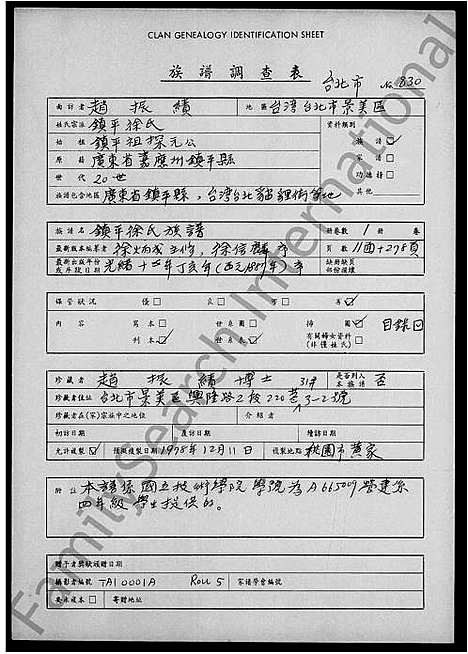 CLAN GENEALOGY IDENTIFICATION SHEET
族譜調查表
台北市 No. 830
面訪者 趙振績 地區 台灣台北市景美區
姓氏宗派 鎮平徐氏 資料類別
始祖 鎮平祖探元公 族譜
原籍 廣東省嘉應州鎮平縣 家譜
世代 20世 功德榜
族譜包含地區 廣東省鎮平縣，台灣台北貓貍街等地 其他
族譜名 鎮平徐氏族譜 冊卷數 1 冊 卷
最新版本編纂者 徐炳 主修，徐信 序 頁數 11面+278頁
最新出版年份或序跋日期 光緒十三年丁亥年（西元1887年）序 缺冊缺頁部份損壞
保管狀況 優 良 可 劣
內容 寫本 世系圖 插圖 目錄
刊本 世系表 有關婦女資料（非僅姓氏）
珍藏者 趙振績博士 是否列入本族譜 否
珍藏者住址 台北市景美區興隆路2段220巷31弄3-2號
珍藏者在(家)宗族中之地位 介紹者
初訪日期 複訪日期 增訪日期
允許複製 預擬複製日期 1978年12月11日 複製地點 桃園市黃家
附註 本譜係國立技術學院學號為A665009營建系
四年級學生提供的。
贈予者獎狀頒贈日期
攝影者編號 TA10001A Roll 5 家譜學會編號
索未複本 寄贈地址
FamilySearch International